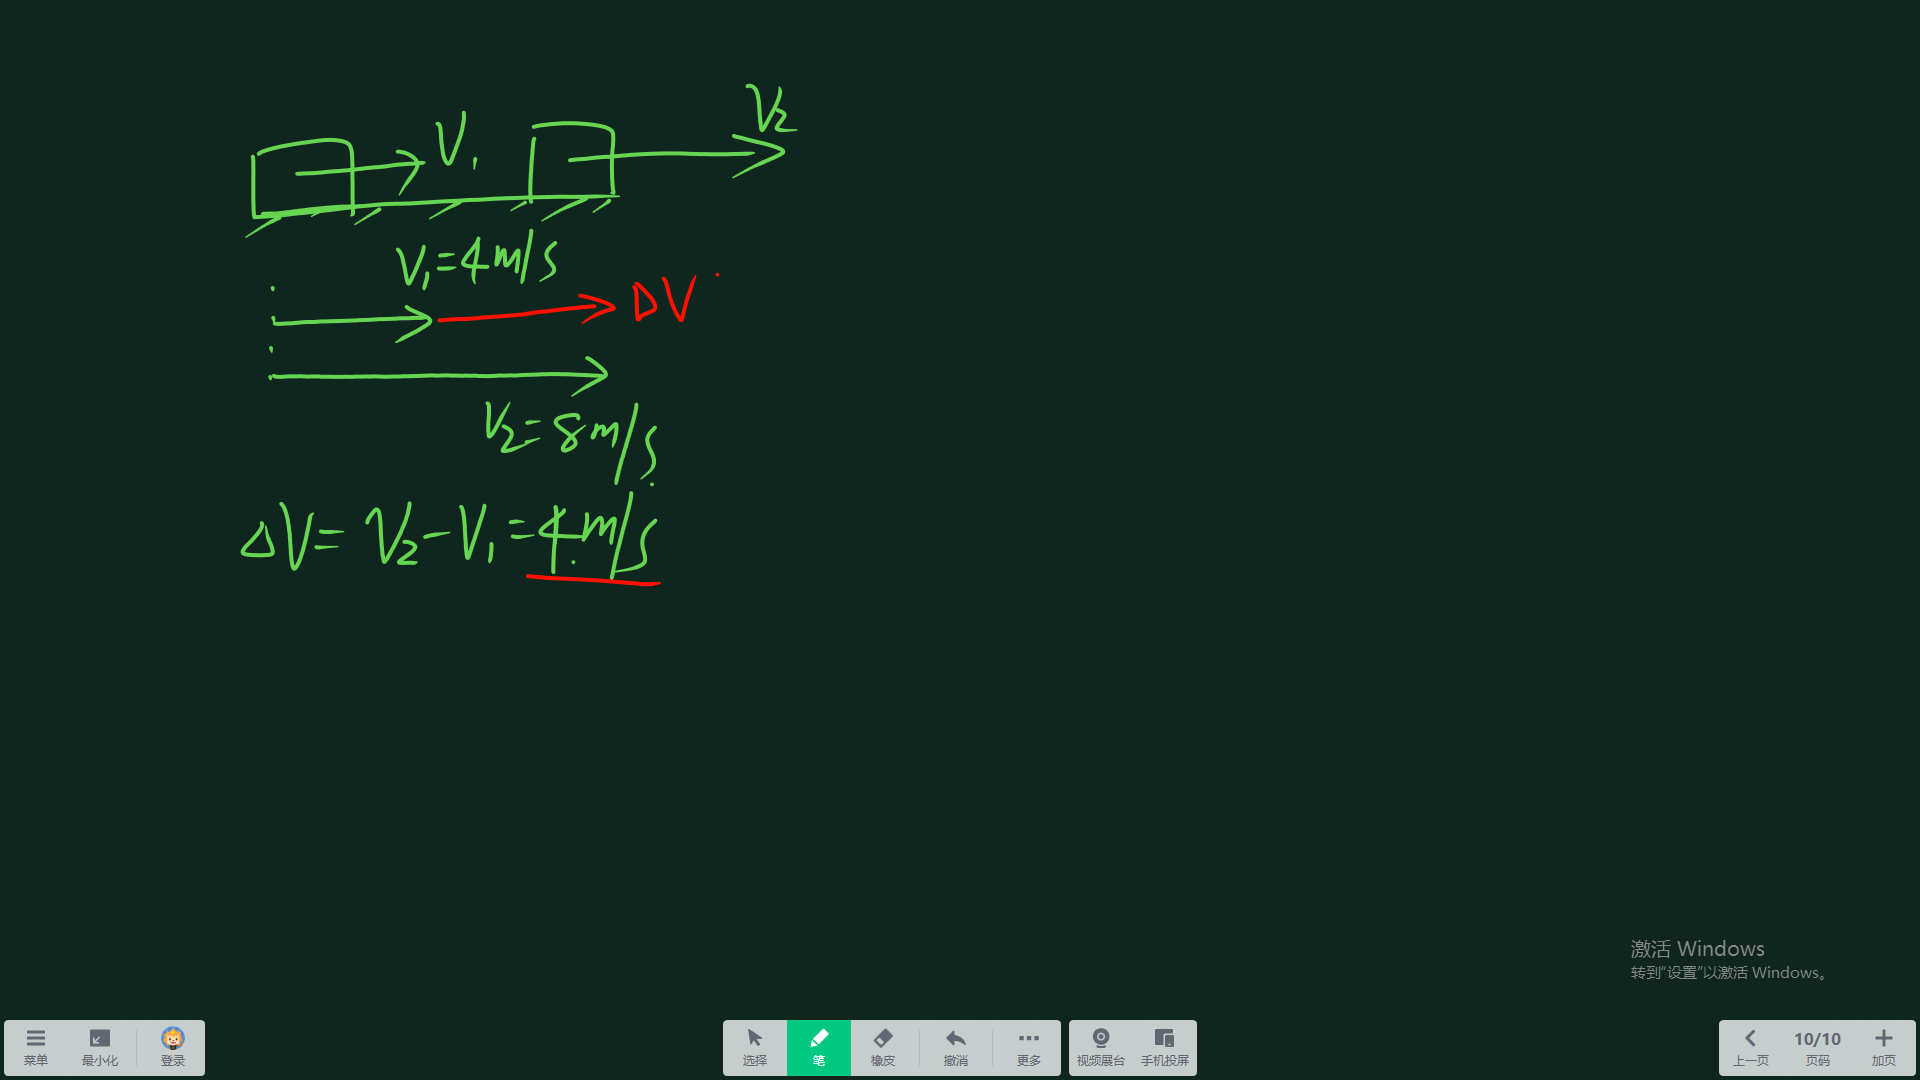 V₂
V₁
V₁=4m/s
ΔV
V₂=8m/s
ΔV=V₂-V₁=4m/s
激活 Windows
转到“设置”以激活 Windows。
菜单 最小化 登录 选择 笔 橡皮 撤消 更多 视频展台 手机投屏 上一页 10/10 页码 加页